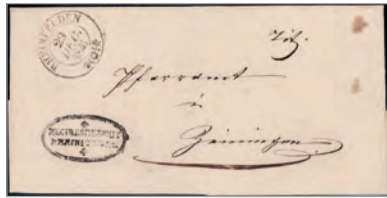 RHEINFELDEN
23
Tit.
Pfarramt
in
Zeiningen
BEZIRKSGERICHT
RHEINFELDEN